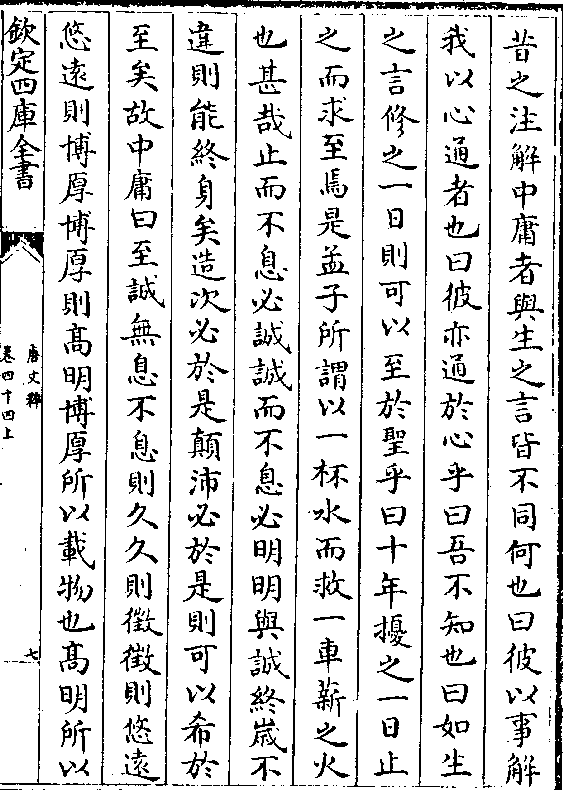 昔之注解中庸者與生之言皆不同何也曰彼以事解
我以心通者也曰彼亦通於心乎曰吾不知也曰如生
之言修之一日則可以至於聖乎曰十年擾之一日止
之而求至焉是孟子所謂以一杯水而救一車薪之火
也甚哉止而不息必誠誠而不息必明明與誠終嵗不
違則能終身矣造次必於是顛沛必於是則可以希於
至矣故中庸曰至誠無息不息則久久則徵徵則悠遠
悠遠則博厚博厚則髙明博厚所以載物也髙明所以
欽定四庫全書
唐文粹
卷四十四上
七